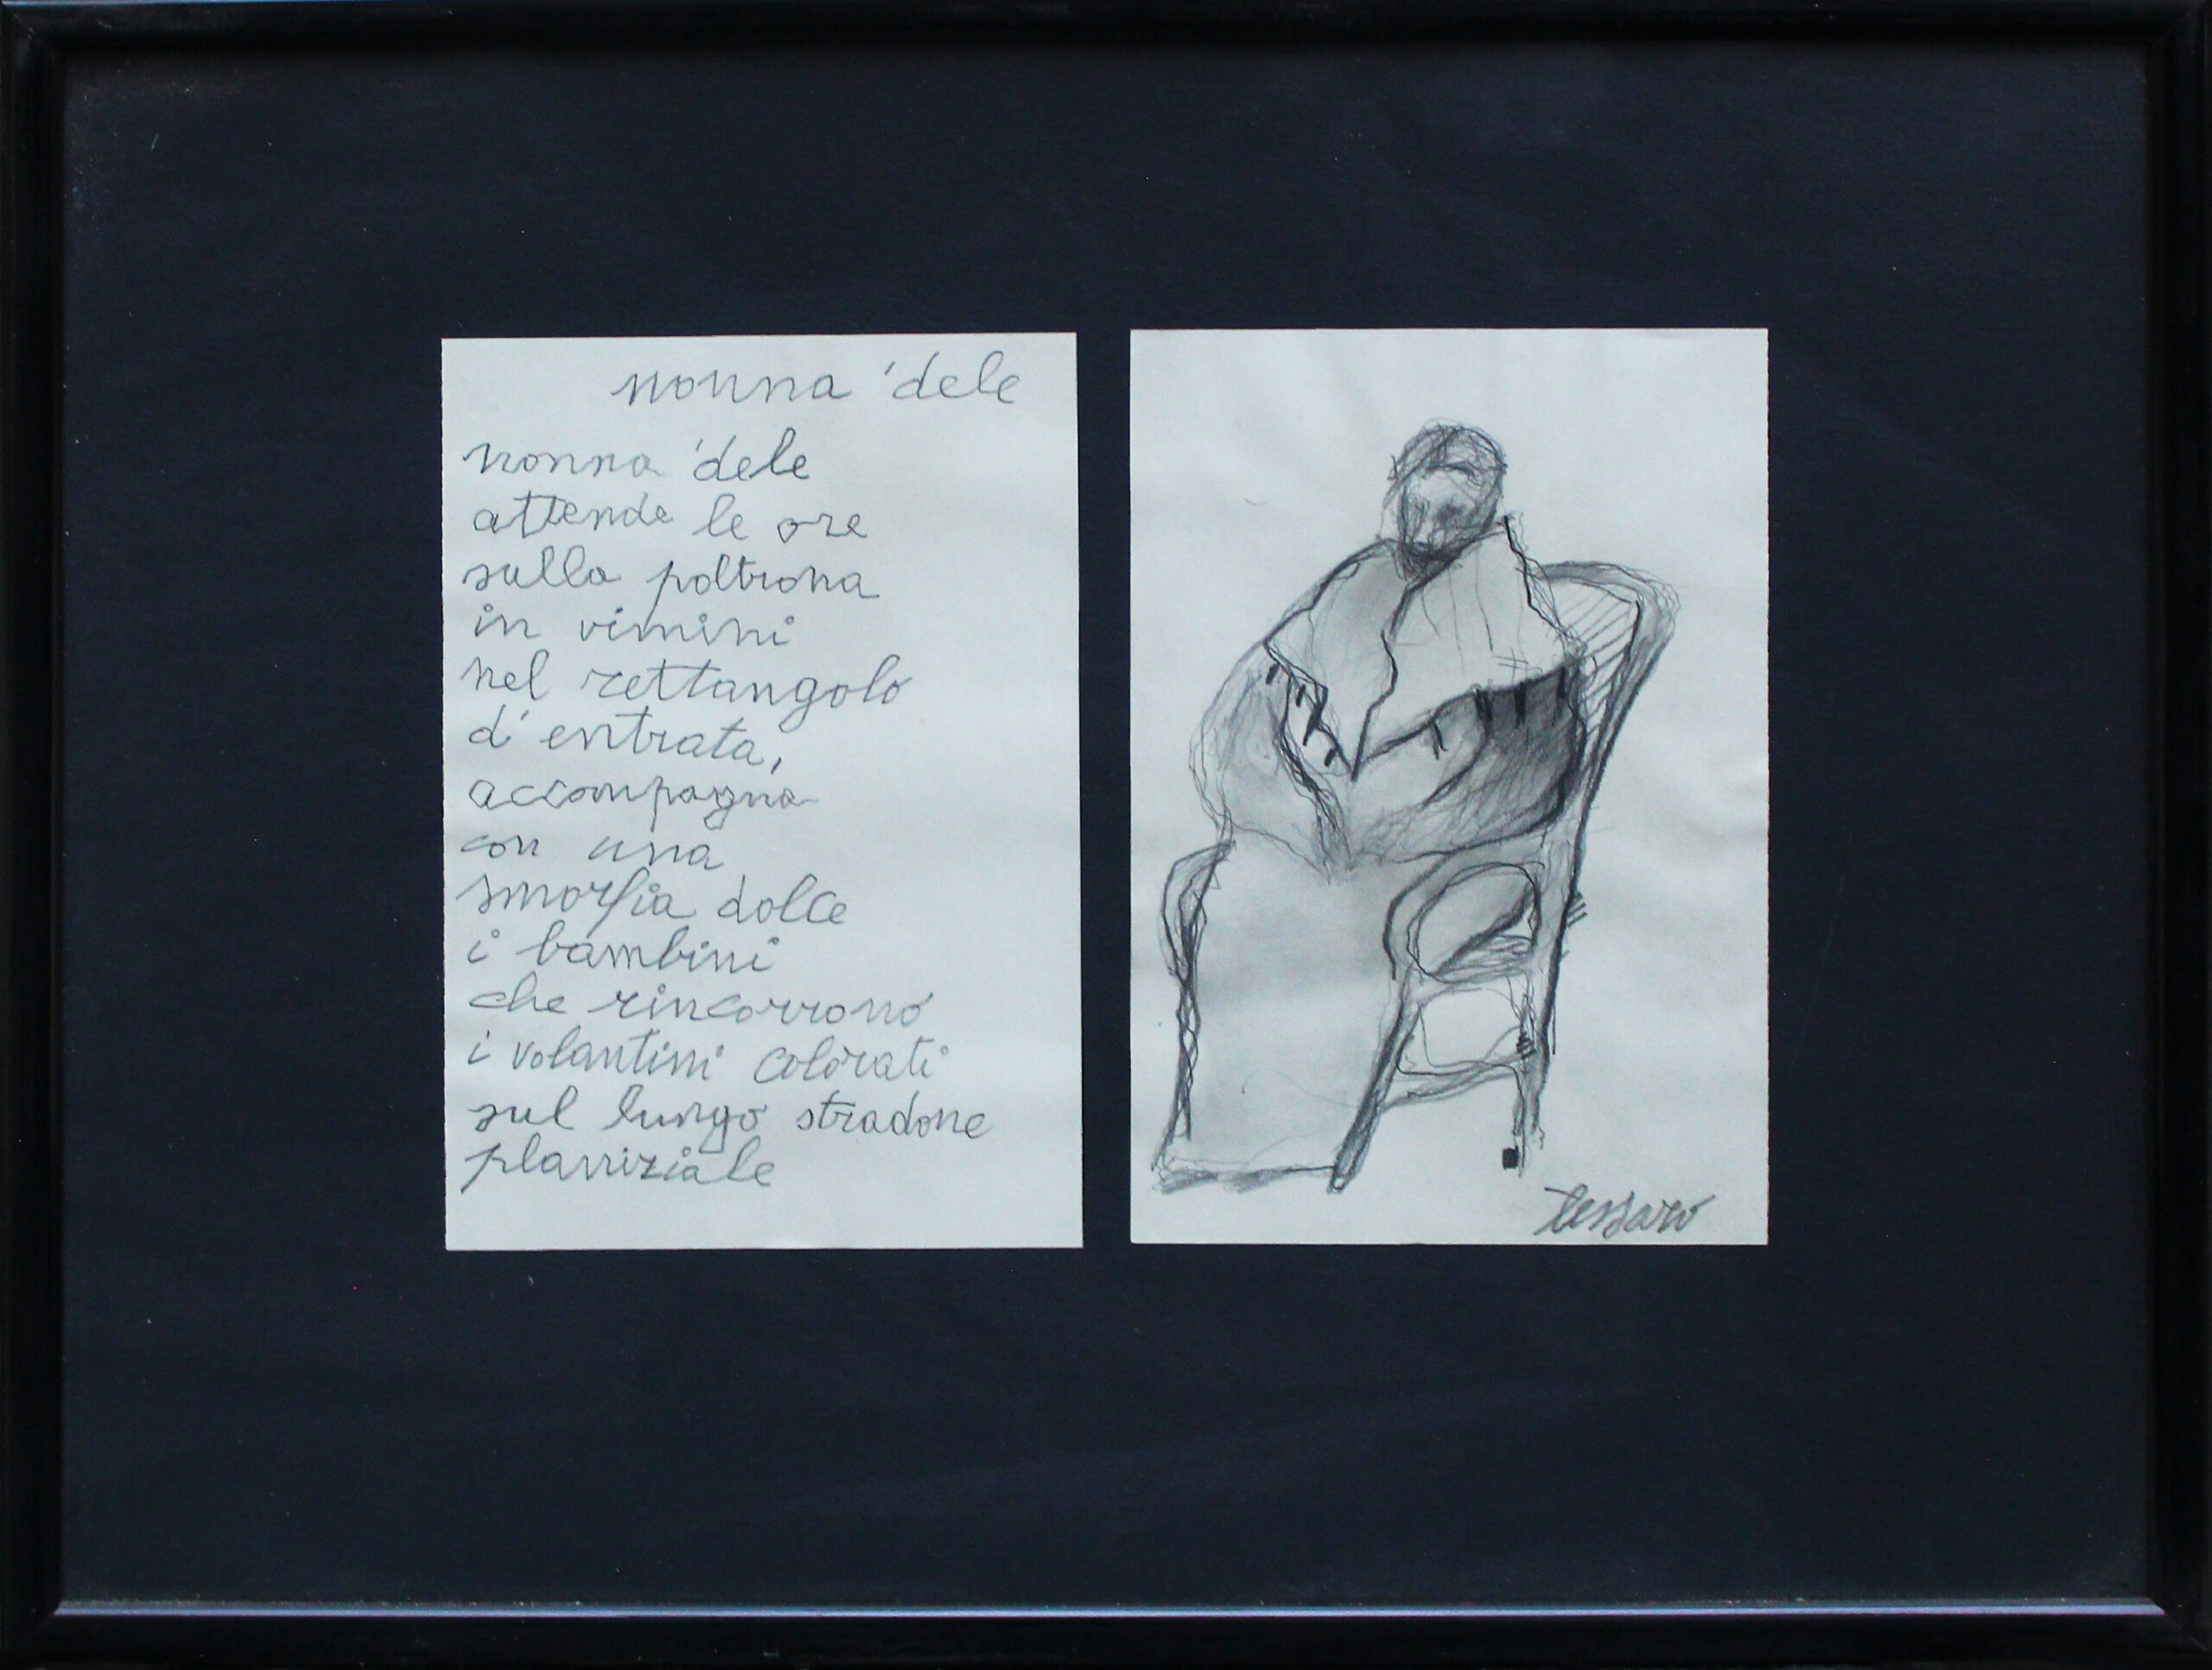 nonna 'dele
nonna 'dele
attende le ore
sulla poltrona
in vimini
nel rettangolo
d'entrata,
accompagna
con una
smorfia dolce
i bambini
che rincorrono
i volantini colorati
sul lungo stradone
planiziale
tessaro